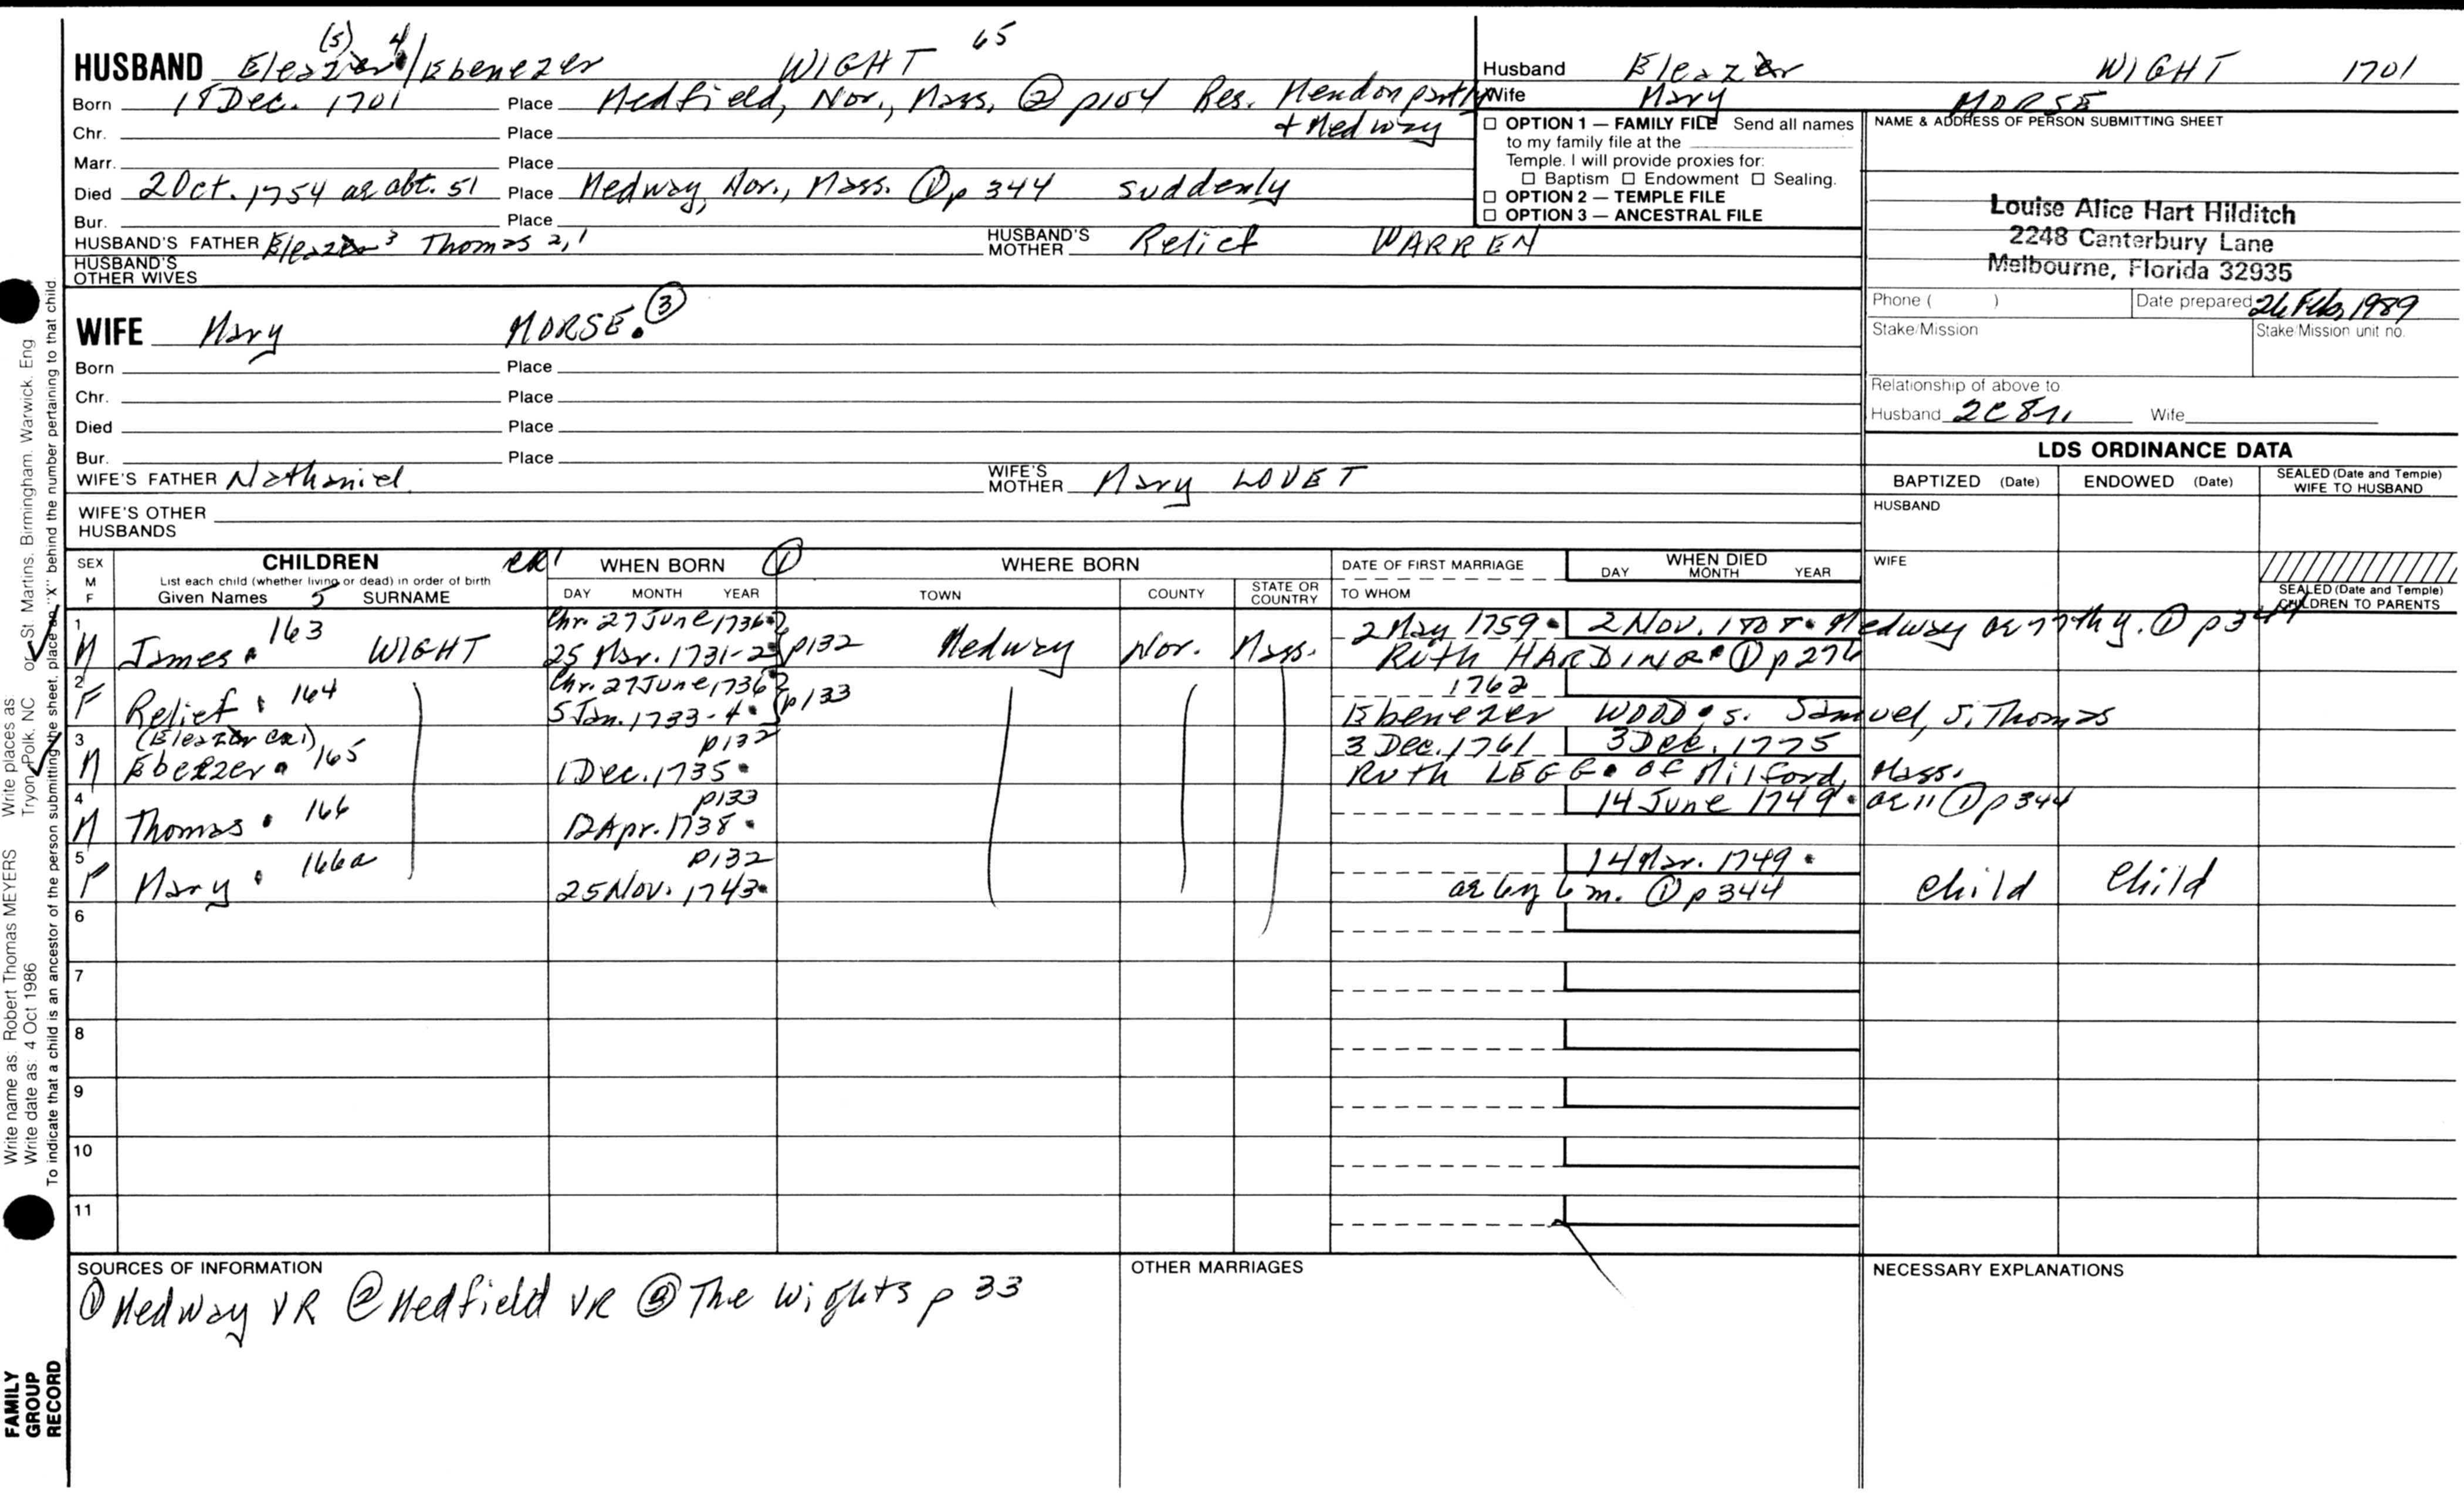 (5) 4 65
HUSBAND Eleazer/Ebenezer WIGHT
Born 18 Dec. 1701 Place Medfield, Nor., Mass. ② p104 Res. Mendon partly
Chr. Place + Medway
Marr. Place
Died 2 Oct. 1754 ae abt. 51 Place Medway, Nor., Mass. ① p 344 suddenly
Bur. Place
HUSBAND'S FATHER Eleazer 3 Thomas 2,1 HUSBAND'S MOTHER Relief WARREN
HUSBAND'S OTHER WIVES
WIFE Mary MORSE. ③
Born Place
Chr. Place
Died Place
Bur. Place
WIFE'S FATHER Nathaniel WIFE'S MOTHER Mary LOVET
WIFE'S OTHER HUSBANDS
Husband Eleazer WIGHT 1701
Wife Mary MORSE
☐ OPTION 1 — FAMILY FILE Send all names
to my family file at the
Temple. I will provide proxies for:
☐ Baptism ☐ Endowment ☐ Sealing.
☐ OPTION 2 — TEMPLE FILE
☐ OPTION 3 — ANCESTRAL FILE
NAME & ADDRESS OF PERSON SUBMITTING SHEET
Louise Alice Hart Hilditch
2248 Canterbury Lane
Melbourne, Florida 32935
Phone ( ) Date prepared 26 Feb, 1989
Stake/Mission Stake/Mission unit no.
Relationship of above to
Husband 2C8 Wife
LDS ORDINANCE DATA
BAPTIZED (Date) ENDOWED (Date) SEALED (Date and Temple) WIFE TO HUSBAND
HUSBAND
WIFE
SEALED (Date and Temple)
CHILDREN TO PARENTS
SEX M F CHILDREN CR1 WHEN BORN ① WHERE BORN DATE OF FIRST MARRIAGE WHEN DIED
List each child (whether living or dead) in order of birth
Given Names 5 SURNAME DAY MONTH YEAR TOWN COUNTY STATE OR COUNTRY TO WHOM DAY MONTH YEAR
1 163 Chr. 27 June, 1736. 2 May 1759. 2 Nov. 1808. Medway ae 77th y. ① p 344
M James. WIGHT 25 Mar. 1731-2 p132 Medway Nor. Mass. Ruth HARDING. ① p 276
2 164 Chr. 27 June, 1736 1762
F Relief. 5 Jan. 1733-4. p133 Ebenezer WOOD. s. Samuel, s. Thomas
3 (Eleazer CR1) 165 p132 3 Dec. 1761 3 Dec. 1775
M Ebeezer. 1 Dec. 1735. Ruth LEGG. of Milford, Mass.
4 166 p133 14 June 1749. ae 11 ① p 344
M Thomas. 12 Apr. 1738.
5 166a p132 14 Mar. 1749.
F Mary. 25 Nov. 1743. ae 6 y 6 m. ① p 344 Child Child
6
7
8
9
10
11
SOURCES OF INFORMATION OTHER MARRIAGES NECESSARY EXPLANATIONS
① Medway VR ② Medfield VR ③ The Wights p 33
Write name as: Robert Thomas MEYERS Write places as: Tryon, Polk, NC or St Martins, Birmingham, Warwick, Eng
Write date as: 4 Oct 1986
To indicate that a child is an ancestor of the person submitting the sheet, place an "X" behind the number pertaining to that child.
FAMILY
GROUP
RECORD